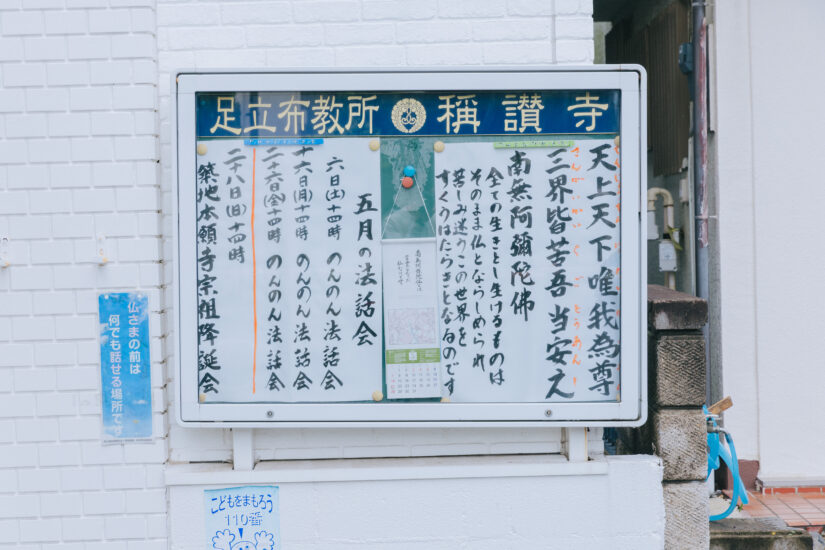 足立布教所 稱讃寺
天上天下唯我為尊
三界皆苦吾当安之
さんがいかいくごとうあんし
南無阿彌陀佛
全ての生きとし生けるものは
そのまま仏とならしめられ
苦しみ迷うこの世界を
すくうはたらきとなるのです
五月の法話会
六日(土)十四時 のんのん法話会
十六日(月)十四時 のんのん法話会
二十六日(金)十四時 のんのん法話会
二十八日(日)十四時
築地本願寺宗祖降誕会
仏さまの前は
何でも話せる場所です
こどもをまもろう
110番